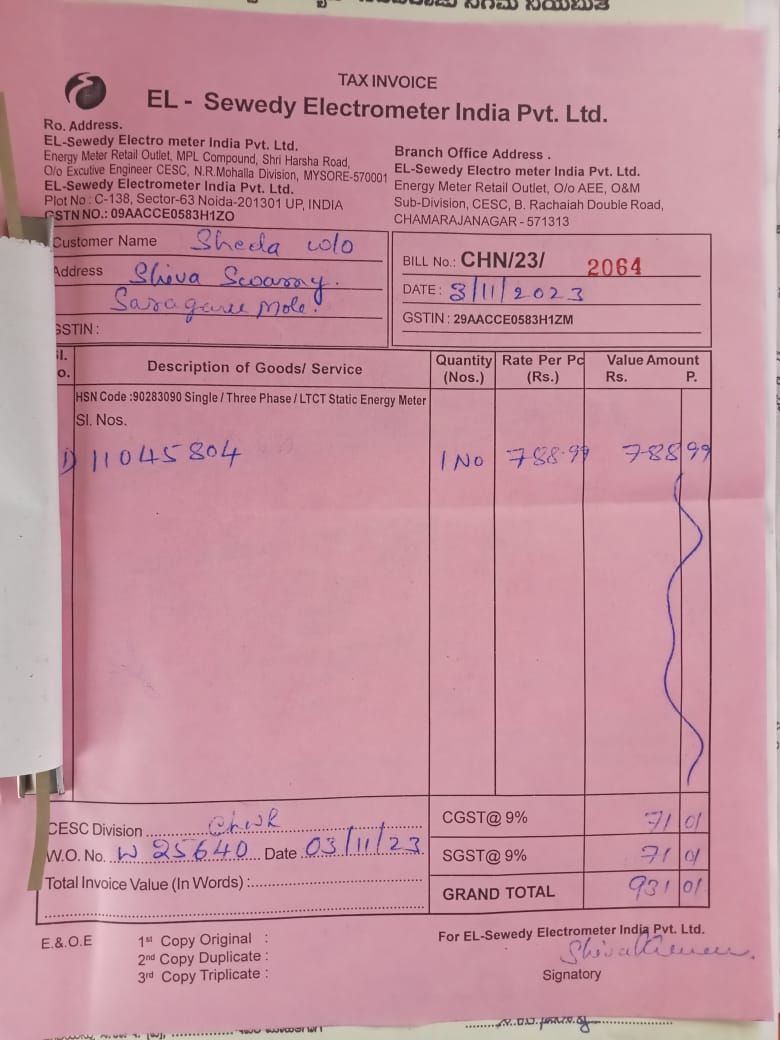 TAX INVOICE
EL - Sewedy Electrometer India Pvt. Ltd.
Ro. Address.
EL-Sewedy Electro meter India Pvt. Ltd.
Energy Meter Retail Outlet, MPL Compound, Shri Harsha Road,
O/o Excutive Engineer CESC, N.R.Mohalla Division, MYSORE-570001
EL-Sewedy Electrometer India Pvt. Ltd.
Plot No : C-138, Sector-63 Noida-201301 UP, INDIA
GSTN NO.: 09AACCE0583H1ZO
Branch Office Address .
EL-Sewedy Electro meter India Pvt. Ltd.
Energy Meter Retail Outlet, O/o AEE, O&M
Sub-Division, CESC, B. Rachaiah Double Road,
CHAMARAJANAGAR - 571313
Customer Name Sheela w/o
Address Shiva Swamy.
Mole.
GSTIN :
BILL No.: CHN/23/ 2064
DATE : 3/11/2023
GSTIN : 29AACCE0583H1ZM
Sl. No. Description of Goods/ Service Quantity (Nos.) Rate Per Pc (Rs.) Value Amount Rs. P.
HSN Code :90283090 Single / Three Phase / LTCT Static Energy Meter
Sl. Nos.
1) 11045804 1 No 788.99 788 99
CESC Division Chnr
W.O. No. W 25640 Date 03/11/23
Total Invoice Value (In Words) :
CGST@ 9% 71 01
SGST@ 9% 71 01
GRAND TOTAL 931 01
E.& O.E
1st Copy Original :
2nd Copy Duplicate :
3rd Copy Triplicate :
For EL-Sewedy Electrometer India Pvt. Ltd.
Signatory